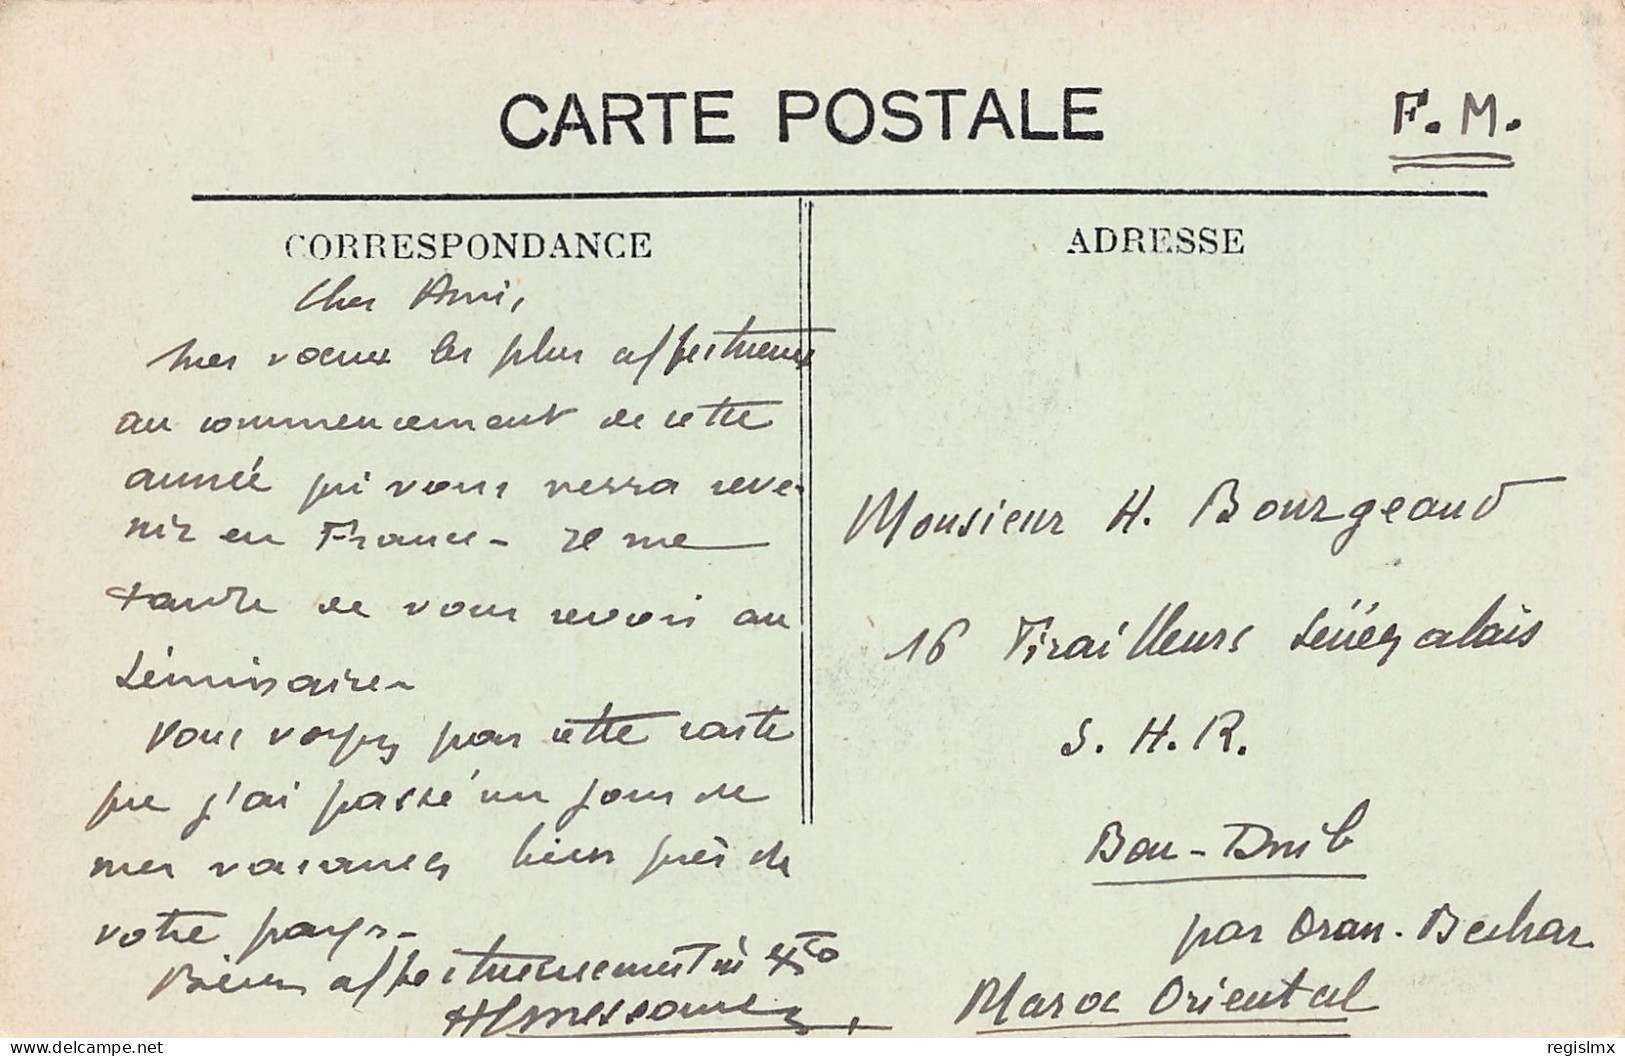 CARTE POSTALE
F. M.
CORRESPONDANCE
Cher Ami,
mes vœux les plus affectueux
au commencement de cette
année qui vous verra reve-
nir en France - Il me
tarde de vous revoir au
Séminaire -
Vous voyez par cette carte
que j'ai passé un jour de
mes vacances bien près de
votre pays -
Bien affectueusement in Xto
ADRESSE
Monsieur H. Bourgeaud
16 Tirailleurs Sénégalais
S. H. R.
Bou-Dnib
par Oran-Bechar
Maroc Oriental
delcampe.net
regislmx